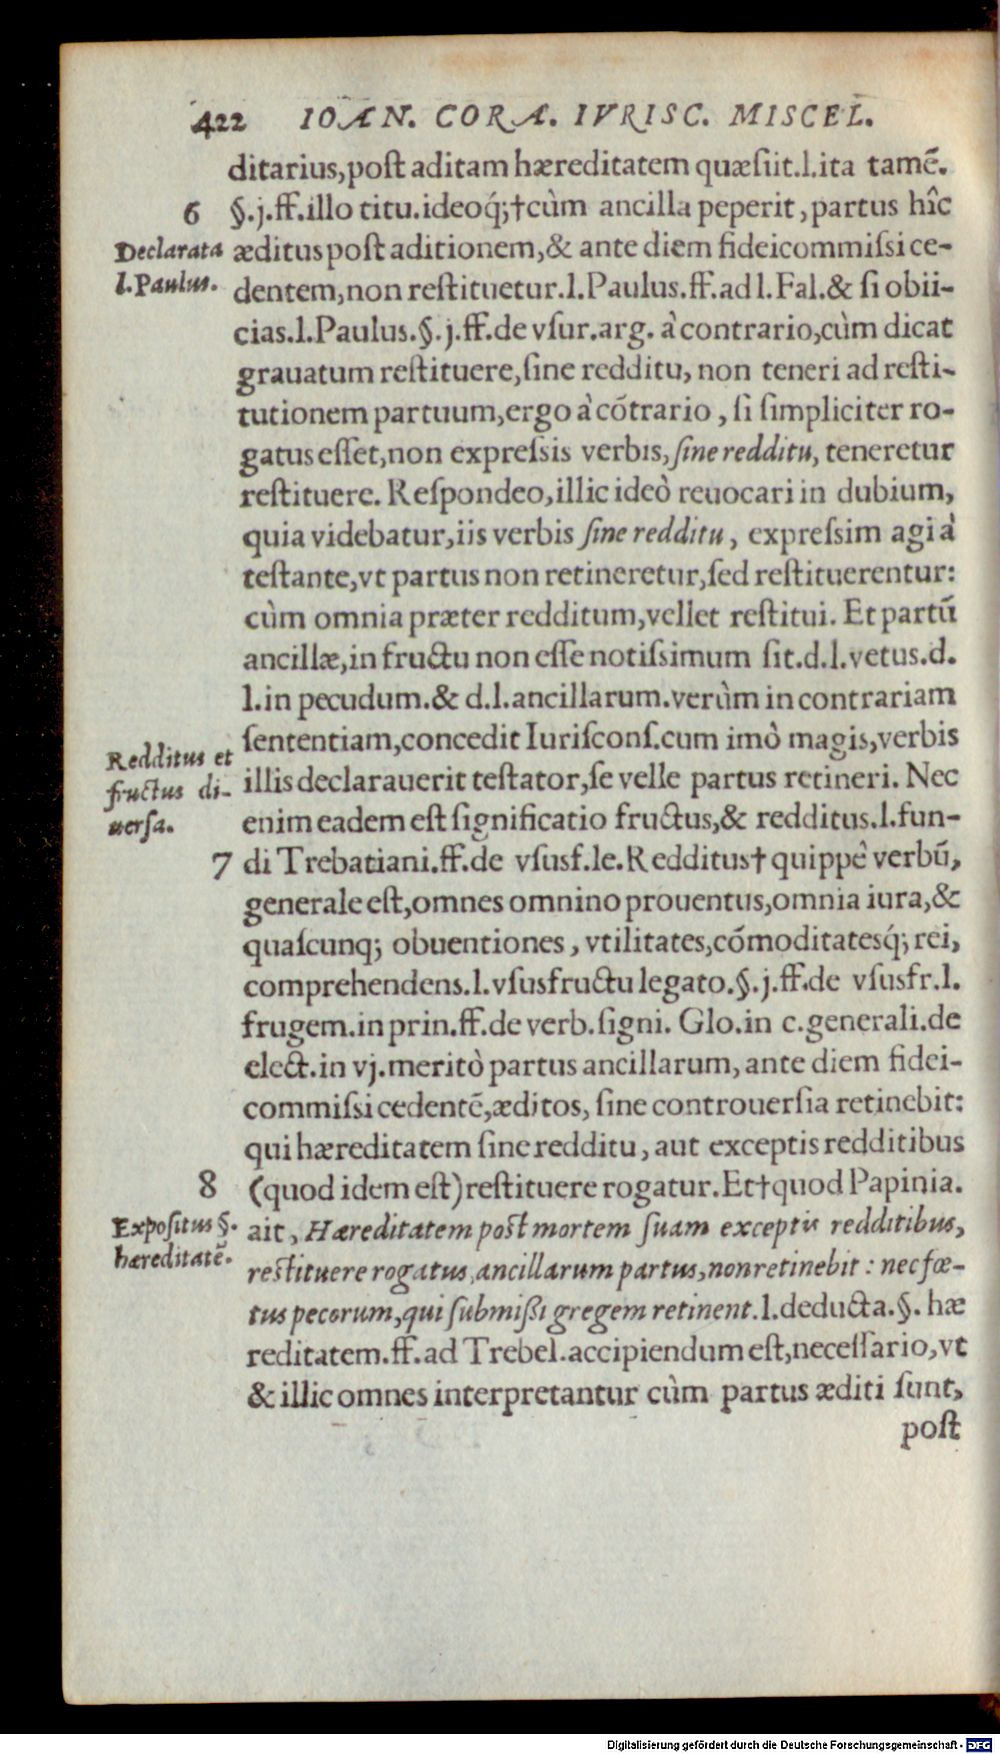 422 IOAN. CORA. IVRISC. MISCEL.
ditarius,post aditam hæreditatem quæsiit.l.ita tamē.
6 §.j.ff.illo titu.ideoq́;†cùm ancilla peperit, partus hîc
Declarata
l.Paulus.
æditus post aditionem,& ante diem fideicommissi ce-
dentem,non restituetur.l.Paulus.ff.ad l.Fal.& si obii-
cias.l.Paulus.§.j.ff.de vsur.arg. à contrario,cùm dicat
grauatum restituere,sine redditu, non teneri ad resti-
tutionem partuum,ergo à cōtrario, si simpliciter ro-
gatus esset,non expressis verbis, sine redditu, teneretur
restituere. Respondeo,illic ideò reuocari in dubium,
quia videbatur,iis verbis sine redditu, expressim agi à
testante,vt partus non retineretur,sed restituerentur:
cùm omnia præter redditum,vellet restitui. Et partū
ancillæ,in fructu non esse notissimum sit.d.l.vetus.d.
l.in pecudum.& d.l.ancillarum.verùm in contrariam
sententiam,concedit Iuriscons.cum imò magis,verbis
Redditus et
fructus di-
uersa.
illis declarauerit testator,se velle partus retineri. Nec
enim eadem est significatio fructus,& redditus.l.fun-
7 di Trebatiani.ff.de vsusf.le.Redditus† quippè verbū,
generale est,omnes omnino prouentus,omnia iura,&
quascunq; obuentiones, vtilitates,cōmoditatesq́; rei,
comprehendens.l.vsusfructu legato.§.j.ff.de vsusfr.l.
frugem.in prin.ff.de verb.signi. Glo.in c.generali.de
elect.in vj.meritò partus ancillarum, ante diem fidei-
commissi cedentē,æditos, sine controuersia retinebit:
qui hæreditatem sine redditu, aut exceptis redditibus
8 (quod idem est) restituere rogatur.Et†quod Papinia.
Expositus §.
hæreditatē.
ait, Hæreditatem post mortem suam exceptis redditibus,
restituere rogatus, ancillarum partus, non retinebit: nec fœ-
tus pecorum,qui submissi gregem retinent.l.deducta.§. hæ
reditatem.ff.ad Trebel.accipiendum est,necessario,vt
& illic omnes interpretantur cùm partus æditi sunt,
post
Digitalisierung gefördert durch die Deutsche Forschungsgemeinschaft - DFG